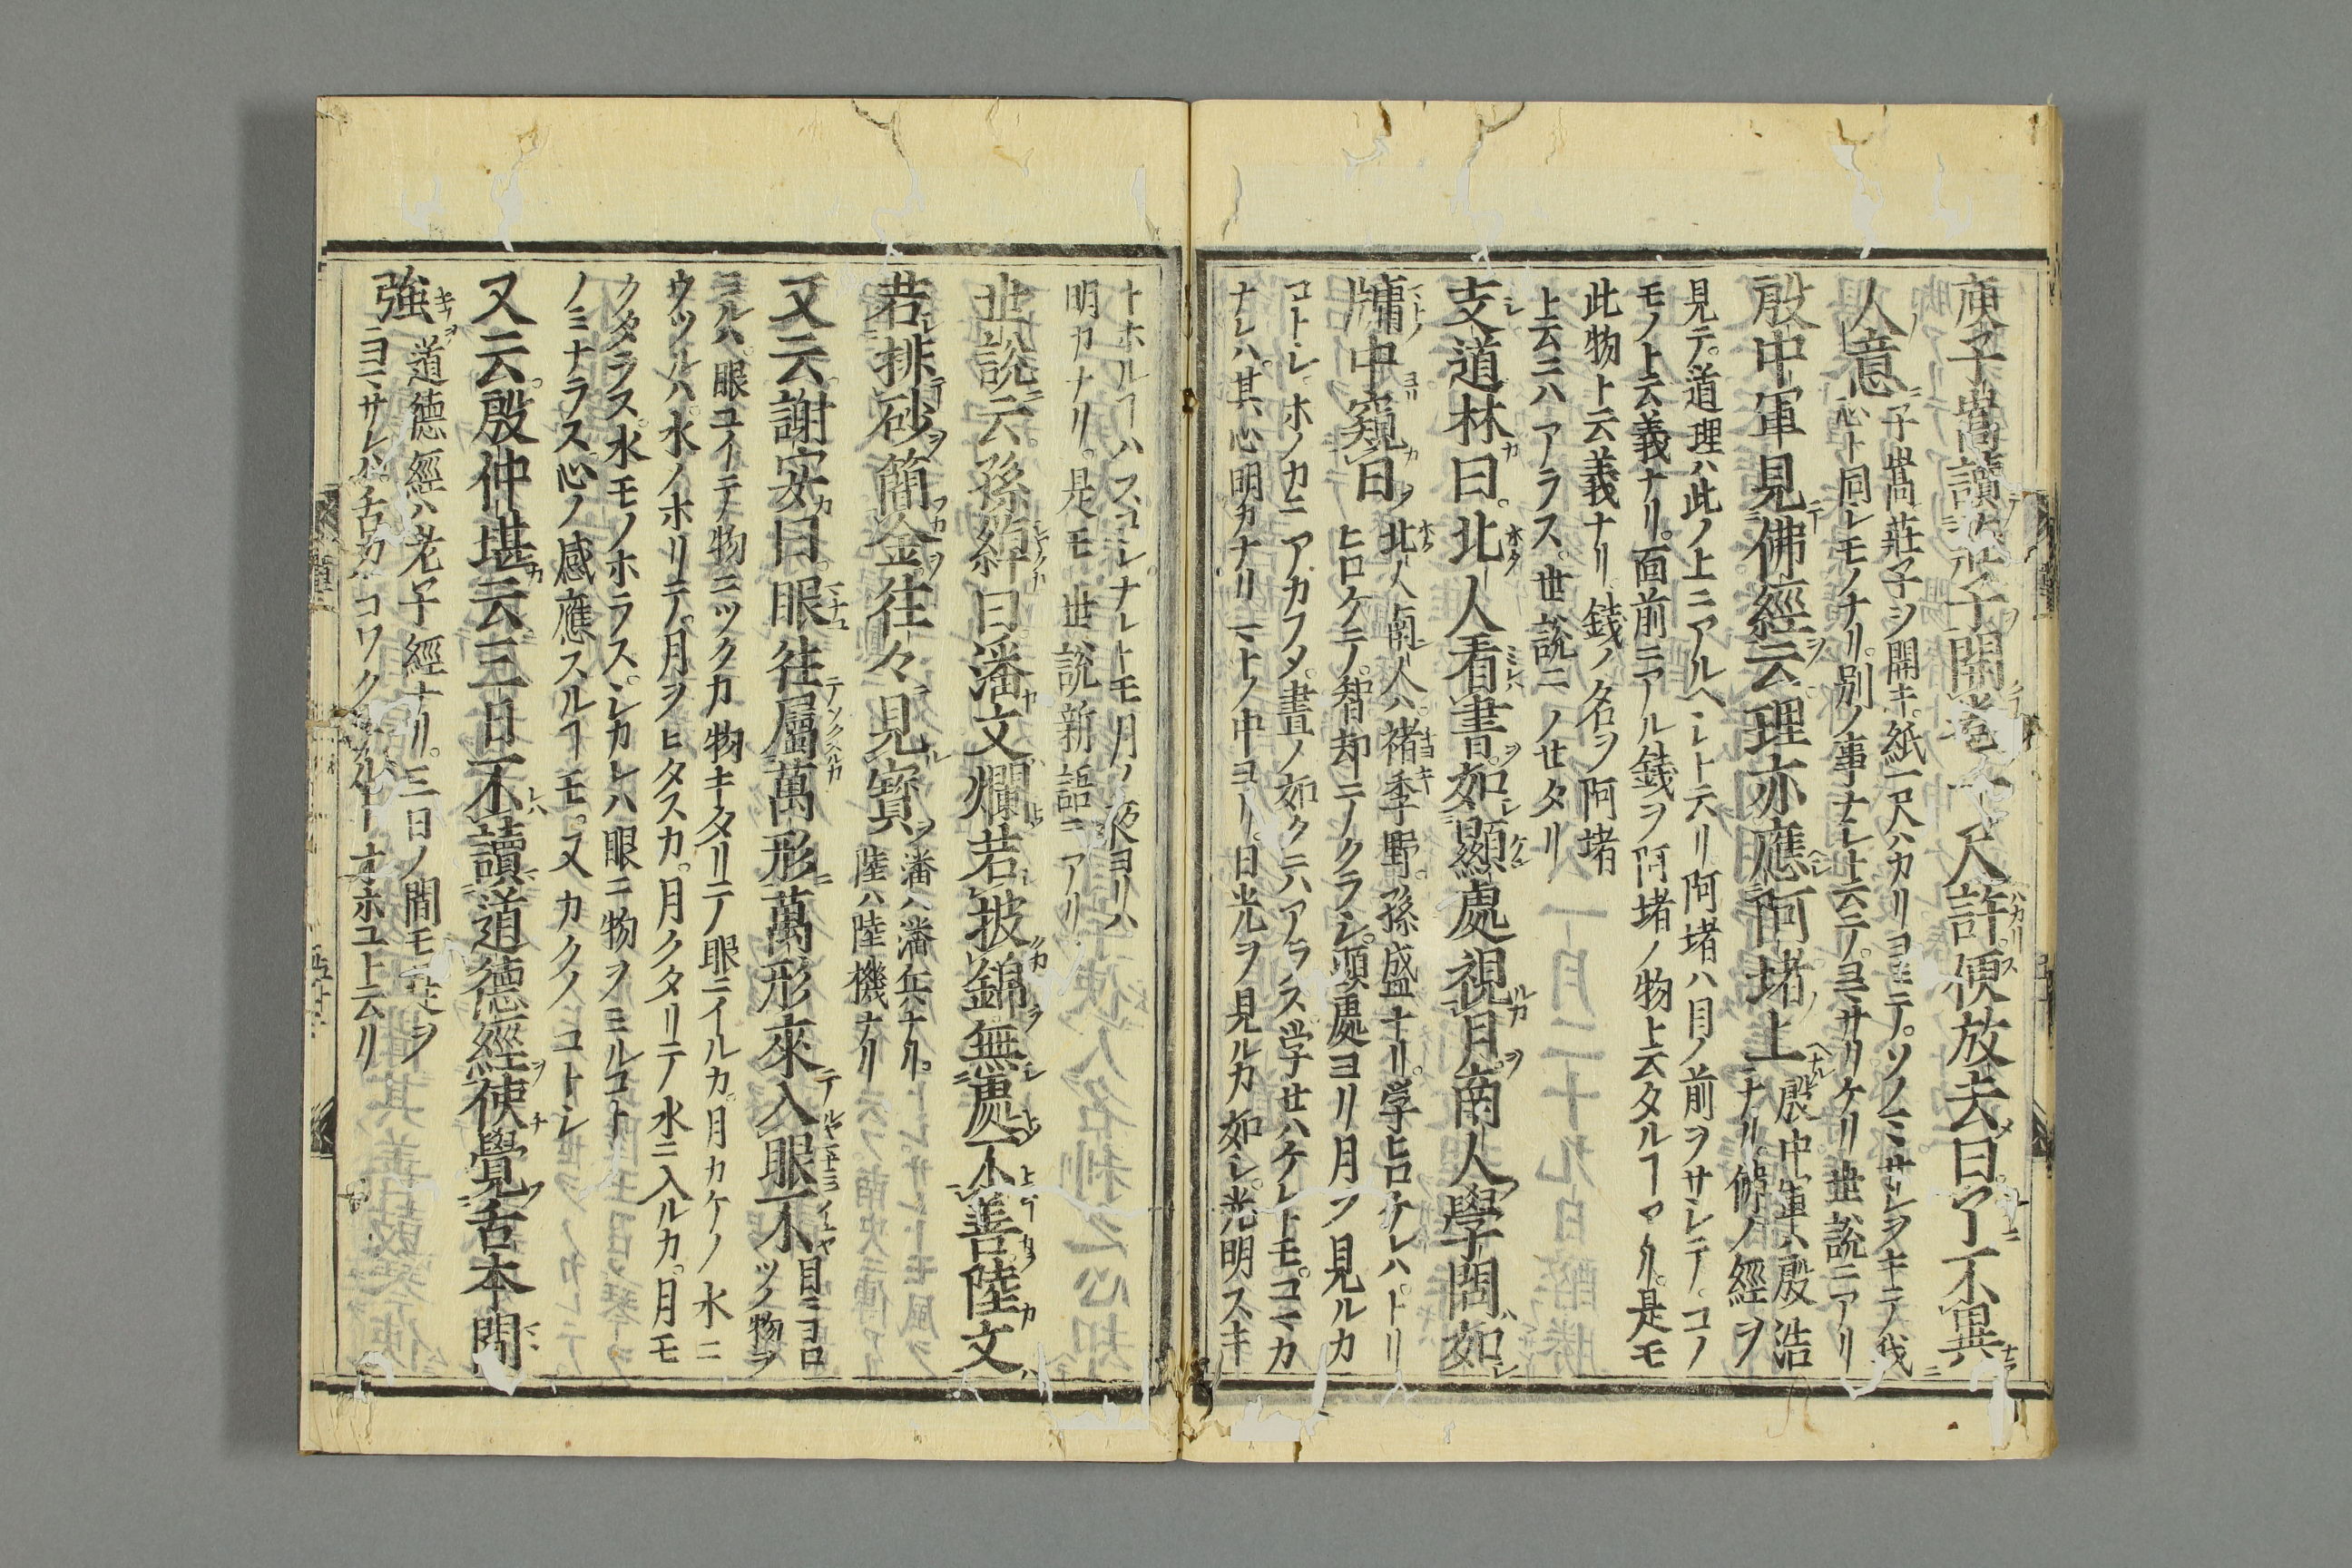 庾子嵩讀莊子開卷一尺許便放去曰了不異
人意
子嵩莊子ヲ開キ紙一尺ハカリヨミテソノミサシヲキテ我
心ト同シモノナリ別ノ事ナシト云テヨミサリケリ世説ニアリ
殷中軍見佛經云理亦應阿堵上
殷中軍ハ殷浩
ナリ佛ノ經ヲ
見テ道理ハ此ノ上ニアルヘシト云ハリ阿堵ハ目ノ前ヲサシテコノ
モノト云義ナリ面前ニアル銭ヲ阿堵ノ物ト云タルヿアリ是モ
此物ト云義ナリ錢ノ名ヲ阿堵
ト云ニハアラス世説ニノセタリ
支道林曰北人看書如顯處視月南人學問如
牖中窺日
北人南人ハ褚季野孫盛ナリ学ヒロケレハトリ
ヒロケテ智却テクラシ顕處ヨリ月ヲ見ルカ
コトシホノカニアカフメ晝ノ如クニハアラス学セハケレトモコマカ
ナレハ其心明カナリマトノ中ヨリ日光ヲ見ルカ如シ光明スキ
トホルヿハスコシナレトモ月ノ夜ヨリハ
明カナリ是モ世説新語ニアリ
世説云孫綽曰潘文爛若披錦無處不善陸文
若排砂簡金往々見寳
潘ハ潘岳ナリ
陸ハ陸機ナリ
又云謝安曰眼往屬萬形萬形來入眼不
目ニヨロ
ツノ物ヲ
ミルハ眼ユイテ物ニツクカ物キタリテ眼ニイルカ月カケノ水ニ
ウツルハ水ノホリテ月ヲヒタスカ月クタリテ水ニ入ルカ月モ
クタラス水モノホラスシカレハ眼ニ物ヲミルコト
ノミナラス心ノ感應スルヿモ又カクノコトシ
又云殷仲堪云三日不讀道德經使覺舌本間
強
道德經ハ老子經ナリ三日ノ間モコレヲ
ヨマサレハ舌カコワクナルトオホユト云リ